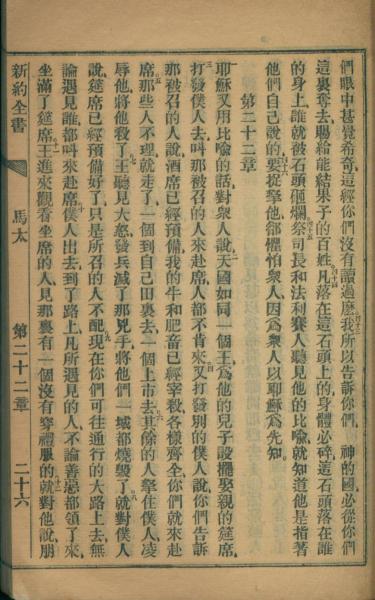 們眼中甚覺希奇這經你們沒有讀過麽我所以告訴你們　神的國必從你們
這裏奪去賜給能結果子的百姓凡落在這石頭上的身體必碎這石頭落在誰
的身上誰就被石頭砸爛祭司長和法利賽人聽見他的比喻就知道他是指著
他們自己說的要捉拏他卻懼怕衆人因爲衆人以耶穌爲先知
第二十二章
耶穌又用比喻的話對衆人說天國如同一個王爲他的兒子設擺娶親的筵席
打發僕人去叫那被召的人來赴席人都不肯來又打發別的僕人說你們告訴
那被召的人說酒席已經預備我的牛和肥畜已經宰殺各樣齊全你們就來赴
席那些人不理就走了一個到自己田裏去一個上市去其餘的人拏住僕人凌
辱他將他殺了王聽見大怒發兵滅了那兇手將他們一城都燒燬了就對僕人
說筵席已經預備好了只是所召的人不配現在你們可往通行的大路上去無
論遇見誰都叫來赴席僕人出去到了路上凡所遇見的人不論善惡都領了來
坐滿了筵席王進來觀看坐席的人見那裏有一個沒有穿禮服的就對他說朋
新約全書
馬太
第二十二章
二十六